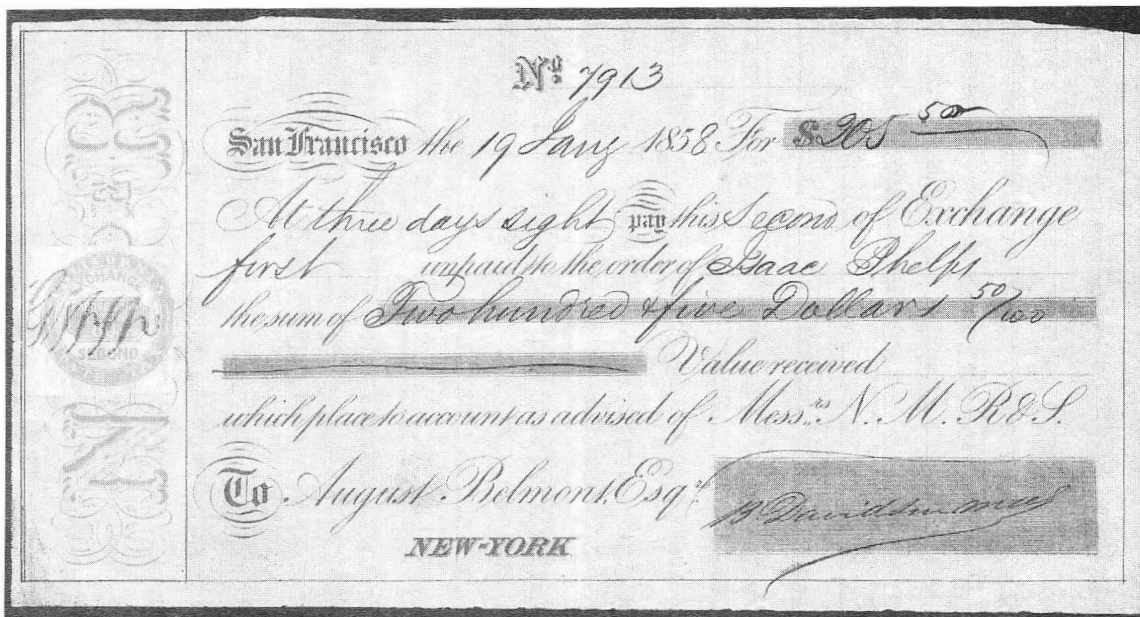 Nº 7913
San Francisco the 19 Jany 1858 For $205 50
At three days sight pay this Second of Exchange
first unpaid to the order of Isaac Phelps
the sum of Two hundred & five Dollars 50/100
Value received
which place to account as advised of Messrs. N. M. R & S.
To August Belmont, Esqr.
B Davidson
NEW-YORK
EXCHANGE
SECOND